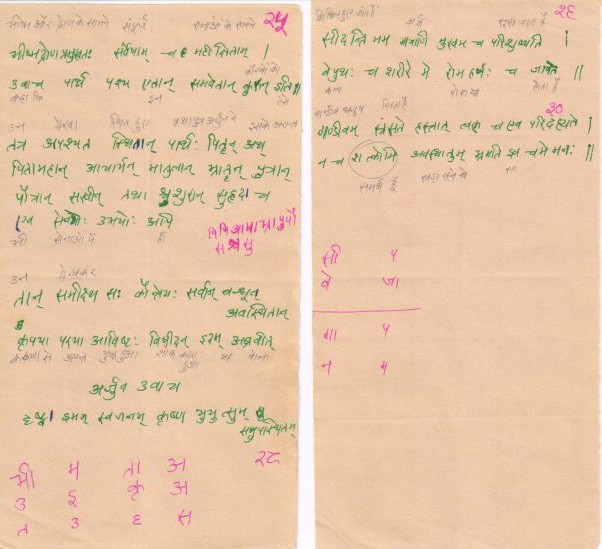 भीष्म और द्रोण के सामने संपूर्ण राजाओं के सामने २५
भीष्मद्रोणप्रमुखतः सर्वेषाम् च महीक्षिताम् |
कौरवों को
उवाच पार्थ पश्य एतान् समवेतान् कुरून् इति ||
कहा कि इन ऐसे
उन देखा स्थित हुए
तत्र अपश्यत् स्थितान् पार्थः पितॄन् अथ
पितामहान् आचार्यान् मातुलान् भ्रातॄन् पुत्रान्
पौत्रान् सखीन् तथा श्वशुरान् सुहृदः च
एव सेनयोः उभयोः अपि
भी सेनाओं में ही
उन देखकर
तान् समीक्ष्य सः कौन्तेयः सर्वान् बन्धून्
अवस्थितान्
कृपया परया आविष्टः विषीदन् इदम् अब्रवीत्
करुणा से यह बोला
अर्जुन उवाच
दृष्ट्वा इमम् स्वजनम् कृष्ण युयुत्सुम्
समुपस्थितम्
२८
भी म ता अ
उ इ कृ अ
त उ द स
२९
सीदन्ति मम गात्राणि मुखम् च परिशुष्यति |
वेपथुः च शरीरे मे रोमहर्षः च जायते ||
कम्प रोमाञ्च होता है
३०
गाण्डीवम् स्त्रंसते हस्तात् त्वक् च एव परिदह्यते |
न च शक्नोमि अवस्थातुम् भ्रमति इव च मे मनः ||
समर्थ हूँ खड़ा रहने को सा
सी प
वे जा
गा प
न म